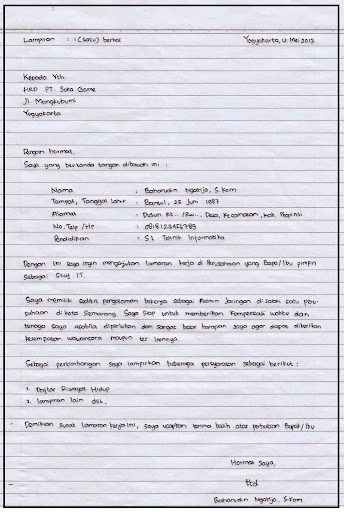 Lampiran : 1 (satu) berkas
Yogyakarta, 12 Mei 2013
Kepada Yth.
HRD PT. Suka Game
Jl. Mangkubumi
Yogyakarta
Dengan hormat,
Saya yang bertanda tangan dibawah ini :
Nama : Baharudin Ngatijo, S.Kom
Tempat, Tanggal Lahir : Bantul, 25 Juni 1987
Alamat : Dusun Rt.. /Rw.., Desa, Kecamatan, Kab, Propinsi
No. Telp /HP : 0818123456789
Pendidikan : S1 Teknik Informatika
Dengan ini saya ingin mengajukan lamaran kerja di Perusahaan yang Bapak/Ibu pimpin
sebagai Staf IT.
Saya memiliki sedikit pengalaman bekerja sebagai Admin Jaringan di salah satu peru-
sahaan di kota Semarang. Saya siap untuk memberikan kompensasi waktu dan
tenaga saya apabila diperlukan dan sangat besar harapan saya agar dapat diberikan
kesempatan wawancara maupun tes lainnya.
Sebagai pertimbangan saya lampirkan beberapa persyaratan sebagai berikut :
1. Daftar Riwayat Hidup
2. lampiran lain dsb.
Demikian surat lamaran kerja ini, saya ucapkan terima kasih atas perhatian Bapak/Ibu
Hormat Saya,
ttd
Baharudin Ngatijo, S.Kom